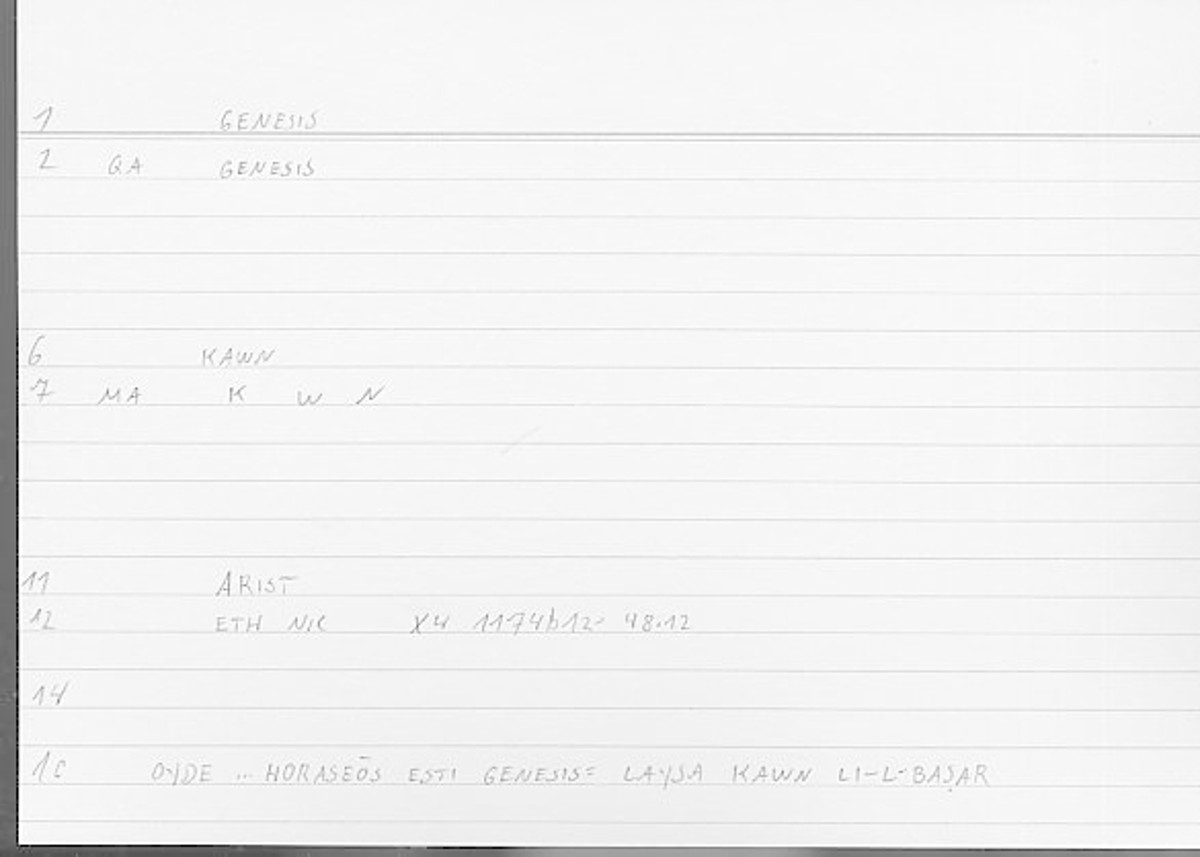 1 GENESIS
2 QA GENESIS
6 KAWN
7 MA K W N
11 ARIST
12 ETH NIC X4 1174b12- 48.12
14
OYDE ... HORASEŌS ESTI GENESIS= LAYSA KAWN LI-L-BAṢAR